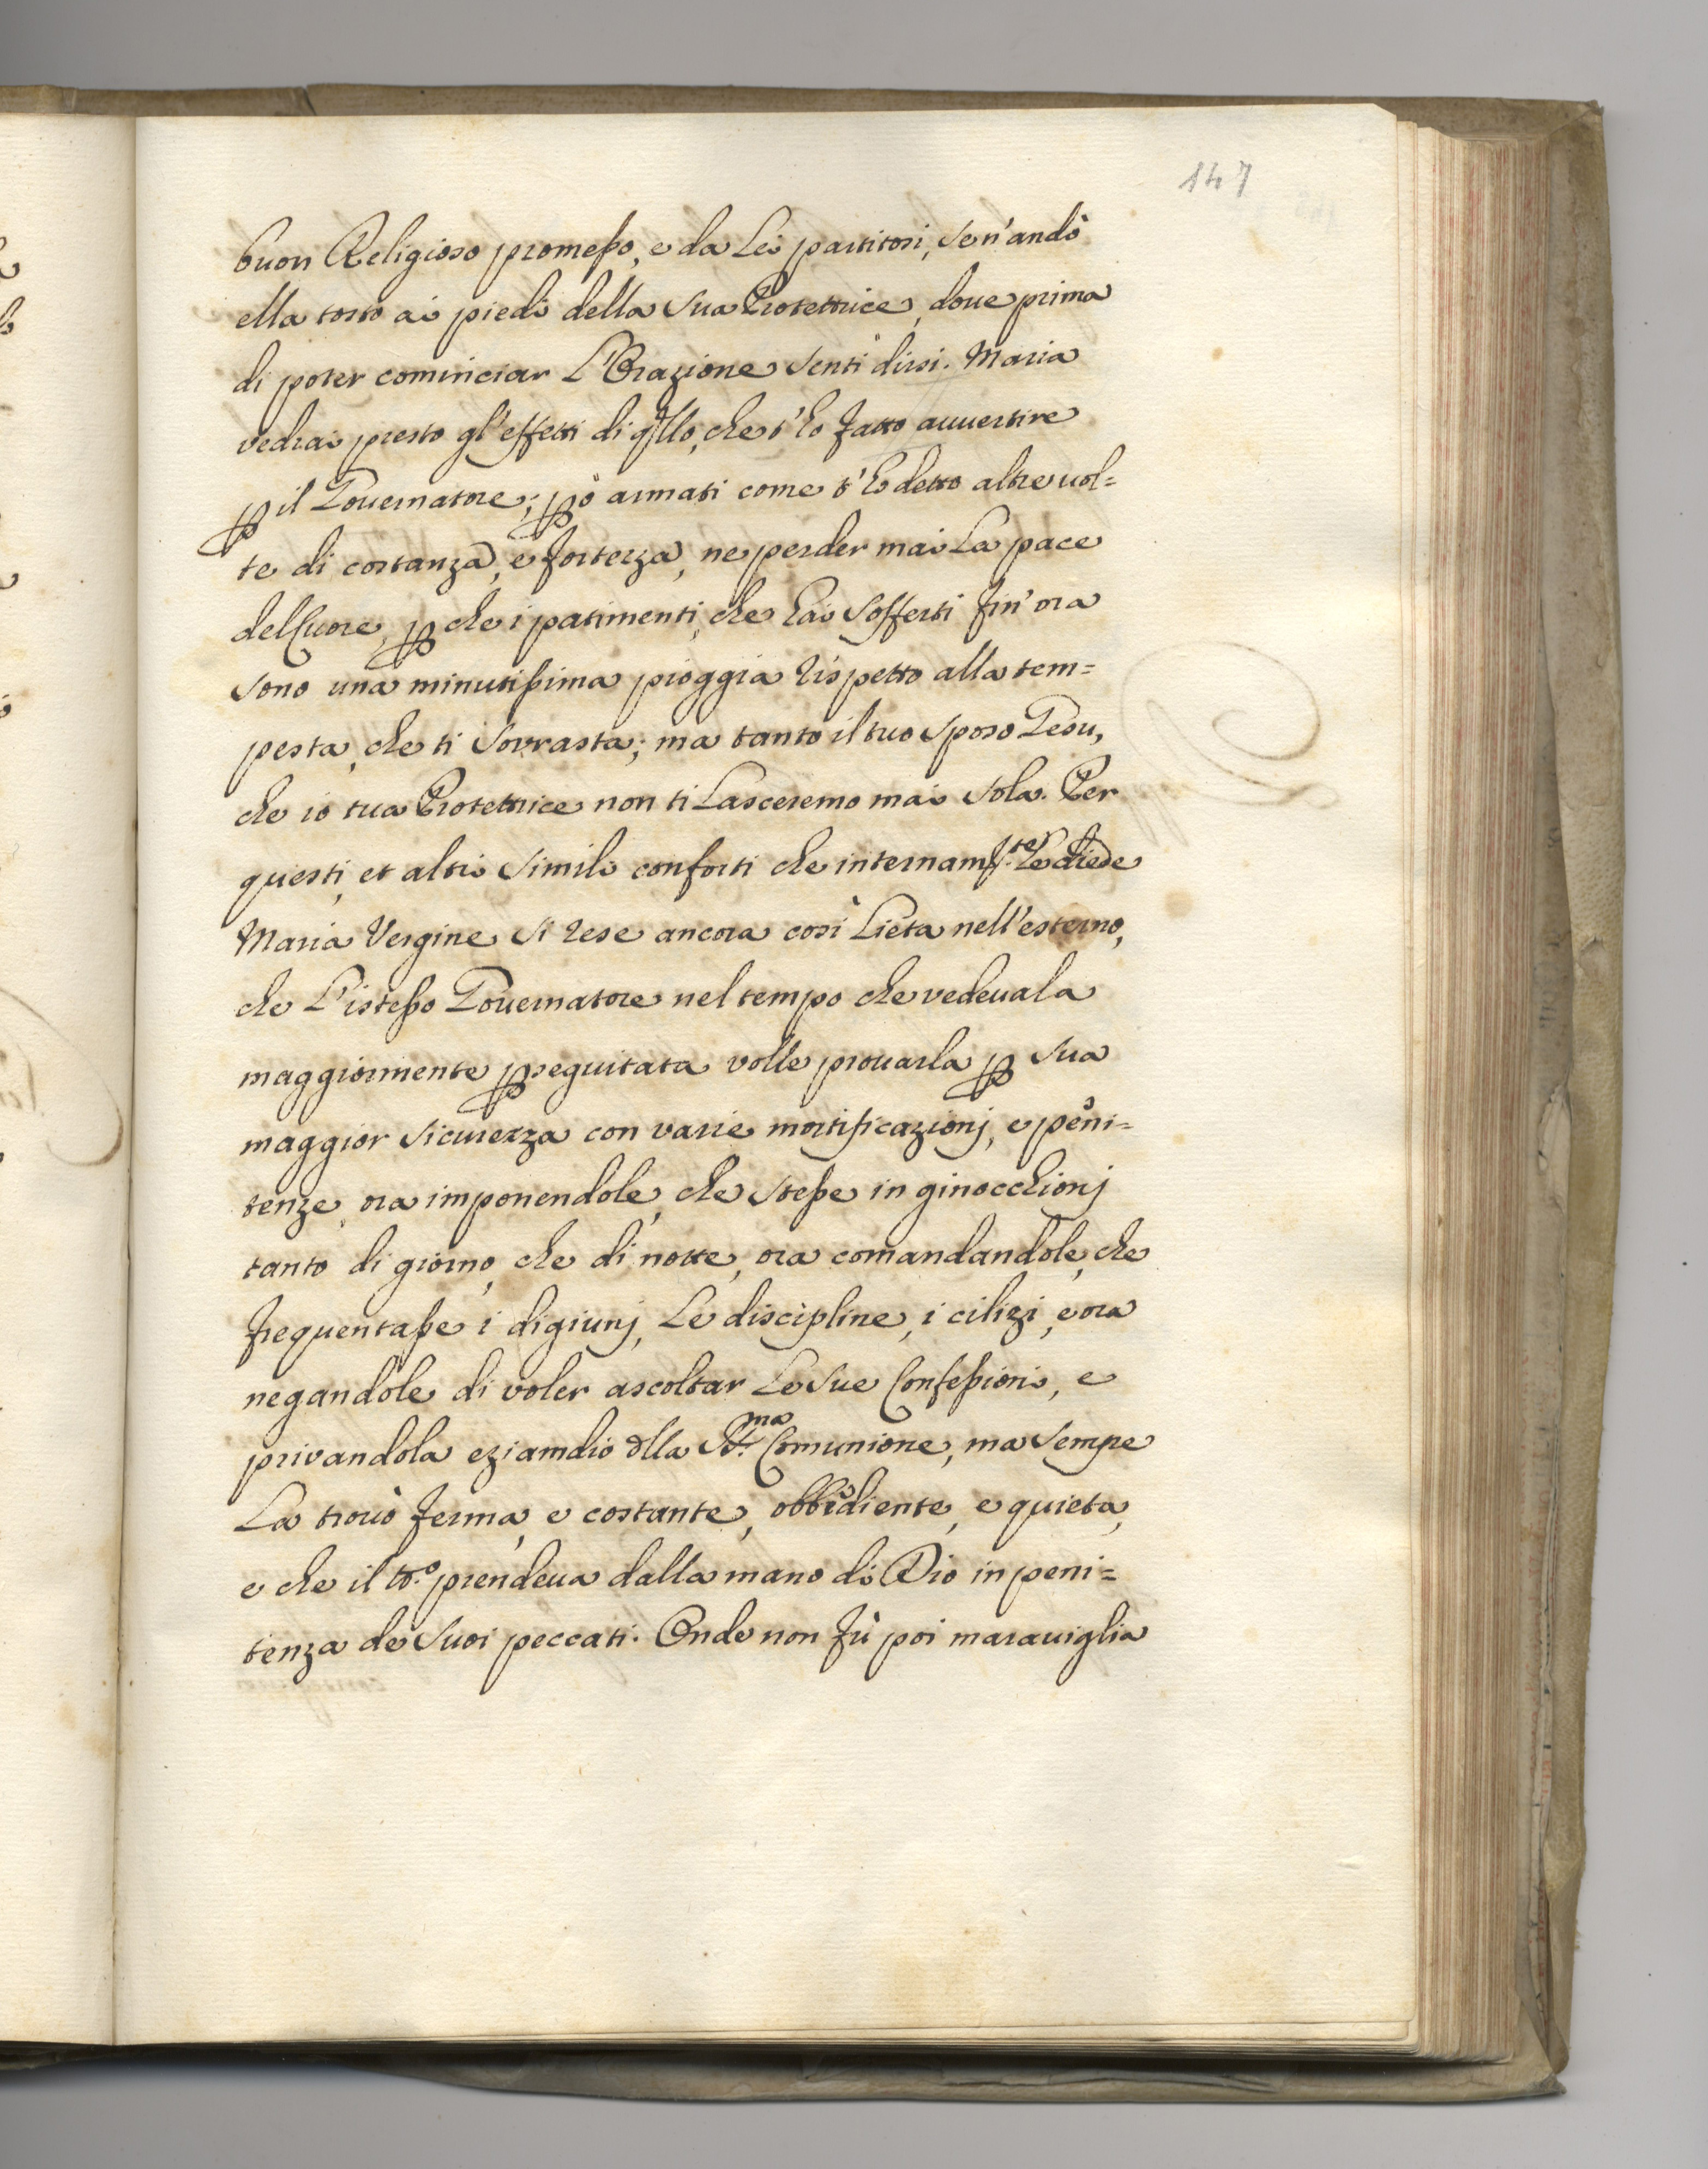 147
buon Religioso promesso, e da Lei partitosi, se n'andò
ella tosto ai piedi della sua Protettrice, doue prima
di poter cominciar L'Orazione sentì dirsi. Maria
vedrai presto gl'effetti di qllo, che t'ho fatto auuertire
ꝑ il Gouernatore; ꝑò armati come t'ho detto altre uol=
te di costanza, e fortezza, ne perder mai La pace
del Cuore, ꝑche i patimenti, che hai sofferti fin'ora
sono una minutissima pioggia rispetto alla tem=
pesta, che ti sovrasta; ma tanto il tuo sposo Gesu,
che io tua Protettrice non ti Lasceremo mai sola. Per
questi, et altri simili conforti che internamte. Le diede
Maria Vergine si rese ancora così Lieta nell'esterno,
che L'istesso Gouernatore nel tempo che vedeuala
maggiormente ꝑseguitata volle prouarla ꝑ sua
maggior sicurezza con varie mortificazionj, e peni=
tenze, ora imponendole, che stesse in ginocchionj
tanto di giorno, che di notte, ora comandandole, che
frequentasse i digiunj, Le discipline, i cilizi, e ora
negandole di voler ascoltar Le sue Confessioni, e
privandola eziamdio dlla SS.ma Comunione, ma sempre
La trouò ferma, e costante, obbediente, e quieta,
e che il tto. prendeua dalla mano di Dio in peni=
tenza de suoi peccati. Onde non fù poi marauiglia